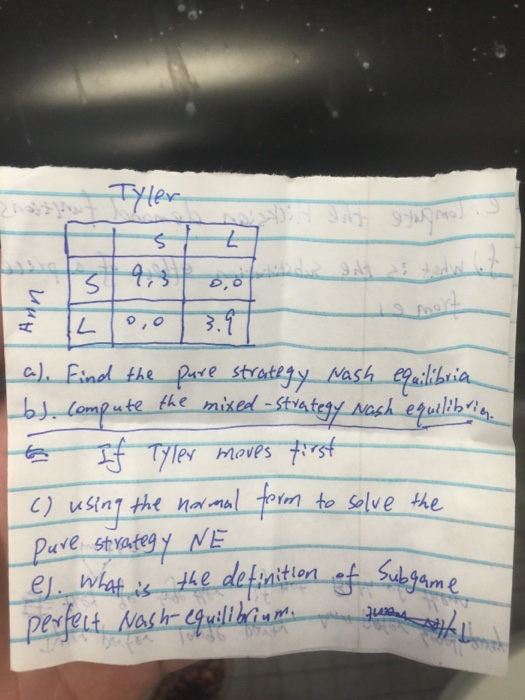 Tyler
S L
Ann
S 9,3 0,0
L 0,0 3,9
a). Find the pure strategy Nash equilibria
b). Compute the mixed-strategy Nash equilibria.
If Tyler moves first
c) using the normal form to solve the
pure strategy NE
e). What is the definition of Subgame
perfect Nash-equilibrium.